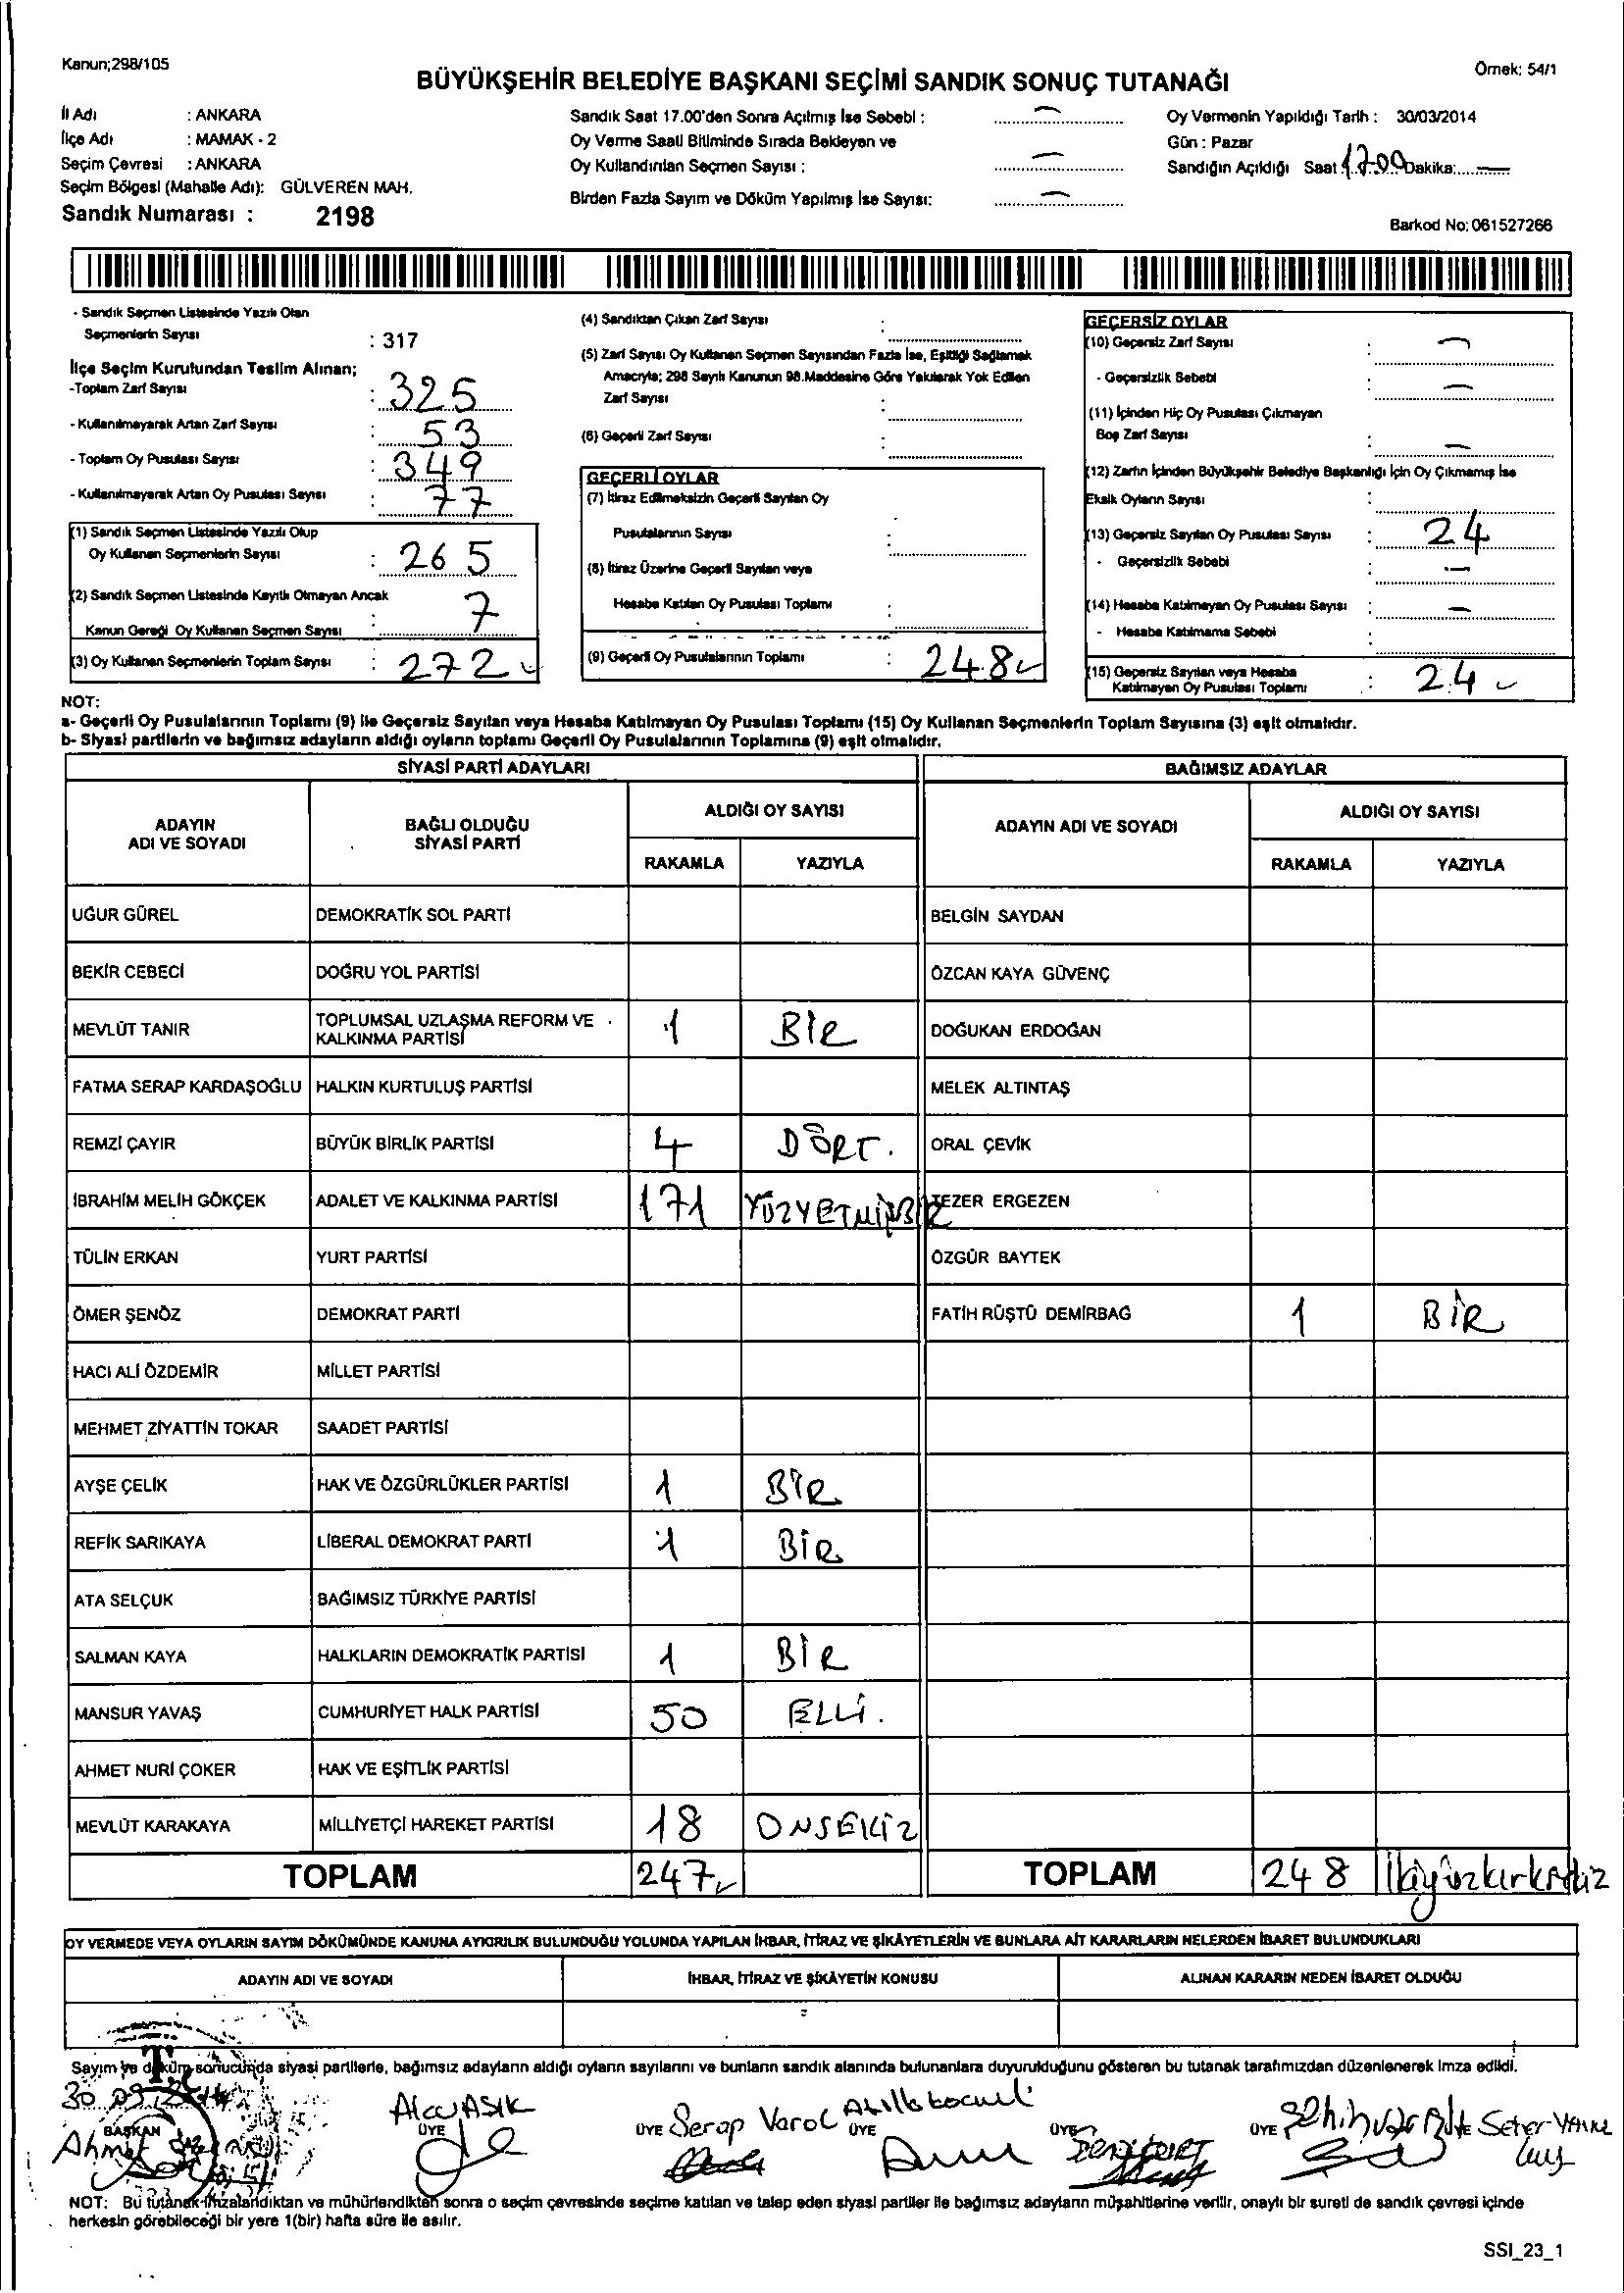 Kanun;298/105
Örnek: 54/1
BÜYÜKŞEHİR BELEDİYE BAŞKANI SEÇİMİ SANDIK SONUÇ TUTANAĞI
İl Adı : ANKARA
İlçe Adı : MAMAK - 2
Seçim Çevresi : ANKARA
Seçim Bölgesi (Mahalle Adı): GÜLVEREN MAH.
Sandık Numarası : 2198
Sandık Saat 17.00'den Sonra Açılmış İse Sebebi : —
Oy Verme Saati Bitiminde Sırada Bekleyen ve
Oy Kullandırılan Seçmen Sayısı : —
Birden Fazla Sayım ve Döküm Yapılmış İse Sayısı: —
Oy Vermenin Yapıldığı Tarih : 30/03/2014
Gün : Pazar
Sandığın Açıldığı Saat 17.00 Dakika: —
Barkod No: 061527266
- Sandık Seçmen Listesinde Yazılı Olan
Seçmenlerin Sayısı : 317
İlçe Seçim Kurulundan Teslim Alınan;
-Toplam Zarf Sayısı : 325
- Kullanılmayarak Artan Zarf Sayısı : 53
- Toplam Oy Pusulası Sayısı : 349
- Kullanılmayarak Artan Oy Pusulası Sayısı : 77
(1) Sandık Seçmen Listesinde Yazılı Olup
Oy Kullanan Seçmenlerin Sayısı : 265
(2) Sandık Seçmen Listesinde Kayıtlı Olmayan Ancak
Kanun Gereği Oy Kullanan Seçmen Sayısı : 7
(3) Oy Kullanan Seçmenlerin Toplam Sayısı : 272
(4) Sandıktan Çıkan Zarf Sayısı :
(5) Zarf Sayısı Oy Kullanan Seçmen Sayısından Fazla İse, Eşitliği Sağlamak
Amacıyla; 298 Sayılı Kanunun 98.Maddesine Göre Yakılarak Yok Edilen
Zarf Sayısı :
(6) Geçerli Zarf Sayısı :
GEÇERLİ OYLAR
(7) İtiraz Edilmeksizin Geçerli Sayılan Oy
Pusulalarının Sayısı :
(8) İtiraz Üzerine Geçerli Sayılan veya
Hesaba Katılan Oy Pusulası Toplamı :
(9) Geçerli Oy Pusulalarının Toplamı : 248
GEÇERSİZ OYLAR
(10) Geçersiz Zarf Sayısı : —
- Geçersizlik Sebebi : —
(11) İçinden Hiç Oy Pusulası Çıkmayan
Boş Zarf Sayısı : —
(12) Zarfın İçinden Büyükşehir Belediye Başkanlığı İçin Oy Çıkmamış İse
Eksik Oyların Sayısı :
(13) Geçersiz Sayılan Oy Pusulası Sayısı : 24
- Geçersizlik Sebebi : —
(14) Hesaba Katılmayan Oy Pusulası Sayısı : —
- Hesaba Katılmama Sebebi :
(15) Geçersiz Sayılan veya Hesaba
Katılmayan Oy Pusulası Toplamı : 24
NOT:
a- Geçerli Oy Pusulalarının Toplamı (9) ile Geçersiz Sayılan veya Hesaba Katılmayan Oy Pusulası Toplamı (15) Oy Kullanan Seçmenlerin Toplam Sayısına (3) eşit olmalıdır.
b- Siyasi partilerin ve bağımsız adayların aldığı oyların toplamı Geçerli Oy Pusulalarının Toplamına (9) eşit olmalıdır.
SİYASİ PARTİ ADAYLARI BAĞIMSIZ ADAYLAR
ADAYIN ADI VE SOYADI BAĞLI OLDUĞU SİYASİ PARTİ ALDIĞI OY SAYISI ADAYIN ADI VE SOYADI ALDIĞI OY SAYISI
RAKAMLA YAZIYLA RAKAMLA YAZIYLA
UĞUR GÜREL DEMOKRATİK SOL PARTİ BELGİN SAYDAN
BEKİR CEBECİ DOĞRU YOL PARTİSİ ÖZCAN KAYA GÜVENÇ
MEVLÜT TANIR TOPLUMSAL UZLAŞMA REFORM VE KALKINMA PARTİSİ 1 BİR DOĞUKAN ERDOĞAN
FATMA SERAP KARDAŞOĞLU HALKIN KURTULUŞ PARTİSİ MELEK ALTINTAŞ
REMZİ ÇAYIR BÜYÜK BİRLİK PARTİSİ 4 DÖRT. ORAL ÇEVİK
İBRAHİM MELİH GÖKÇEK ADALET VE KALKINMA PARTİSİ 171 YÜZYETMİŞBİR TEZER ERGEZEN
TÜLİN ERKAN YURT PARTİSİ ÖZGÜR BAYTEK
ÖMER ŞENÖZ DEMOKRAT PARTİ FATİH RÜŞTÜ DEMİRBAĞ 1 BİR
HACI ALİ ÖZDEMİR MİLLET PARTİSİ
MEHMET ZİYATTİN TOKAR SAADET PARTİSİ
AYŞE ÇELİK HAK VE ÖZGÜRLÜKLER PARTİSİ 1 BİR
REFİK SARIKAYA LİBERAL DEMOKRAT PARTİ 1 BİR
ATA SELÇUK BAĞIMSIZ TÜRKİYE PARTİSİ
SALMAN KAYA HALKLARIN DEMOKRATİK PARTİSİ 1 BİR
MANSUR YAVAŞ CUMHURİYET HALK PARTİSİ 50 ELLİ.
AHMET NURİ ÇOKER HAK VE EŞİTLİK PARTİSİ
MEVLÜT KARAKAYA MİLLİYETÇİ HAREKET PARTİSİ 18 ONSEKİZ
TOPLAM 247 TOPLAM 248
OY VERMEDE VEYA OYLARIN SAYIM DÖKÜMÜNDE KANUNA AYKIRILIK BULUNDUĞU YOLUNDA YAPILAN İHBAR, İTİRAZ VE ŞİKÂYETLERİN VE BUNLARA AİT KARARLARIN NELERDEN İBARET BULUNDUKLARI
ADAYIN ADI VE SOYADI İHBAR, İTİRAZ VE ŞİKÂYETİN KONUSU ALINAN KARARIN NEDEN İBARET OLDUĞU
Sayım ve döküm sonucunda siyasi partilerle, bağımsız adayların aldığı oyların sayılarını ve bunların sandık alanında bulunanlara duyurulduğunu gösteren bu tutanak tarafımızdan düzenlenerek imza edildi.
BAŞKAN ÜYE ÜYE Serap Varol ÜYE ÜYE ÜYE ÜYE
Ahmet
NOT: Bu tutanak imzalandıktan ve mühürlendikten sonra o seçim çevresinde seçime katılan ve talep eden siyasi partiler ile bağımsız adayların müşahitlerine verilir, onaylı bir sureti de sandık çevresi içinde
herkesin görebileceği bir yere 1(bir) hafta süre ile asılır.
SSI_23_1